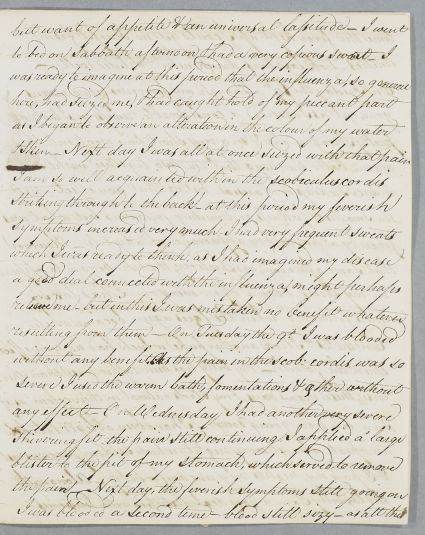 but want of appetite & an universal Lassitude – I went
to bed on Sabbath afternoon & had a very copious sweat – I
was ready to imagine at this period that the influenza, so general
here, had seized me, & had caught hold of my peccant part
as I began to observe an alteration in the colour of my water
& skin – Next day I was all at once seized with that pain
I am so well acquainted with in the scobiculus cordis
striking through to the back – at this period my feverish
symptoms increased very much – I had very frequent sweats
which I was ready to think, as I had imagined my disease
a good deal connected with the influenza, might perhaps
relieve me – but in this I was mistaken no benefit whatever
resulting from them – On Tuesday the 9th I was blooded
without any benefit. As the pain in the scob: cordis was so
severe I used the warm bath, fomentations & without
any effect – On Wednesday I had another very severe
shivering fit, the pain still continuing I applied a large
blister to the pit of my stomach, which served to remove
the pain – Next day, the feverish symptoms still going on
I was blooded a second time – blood still sizy – as all this